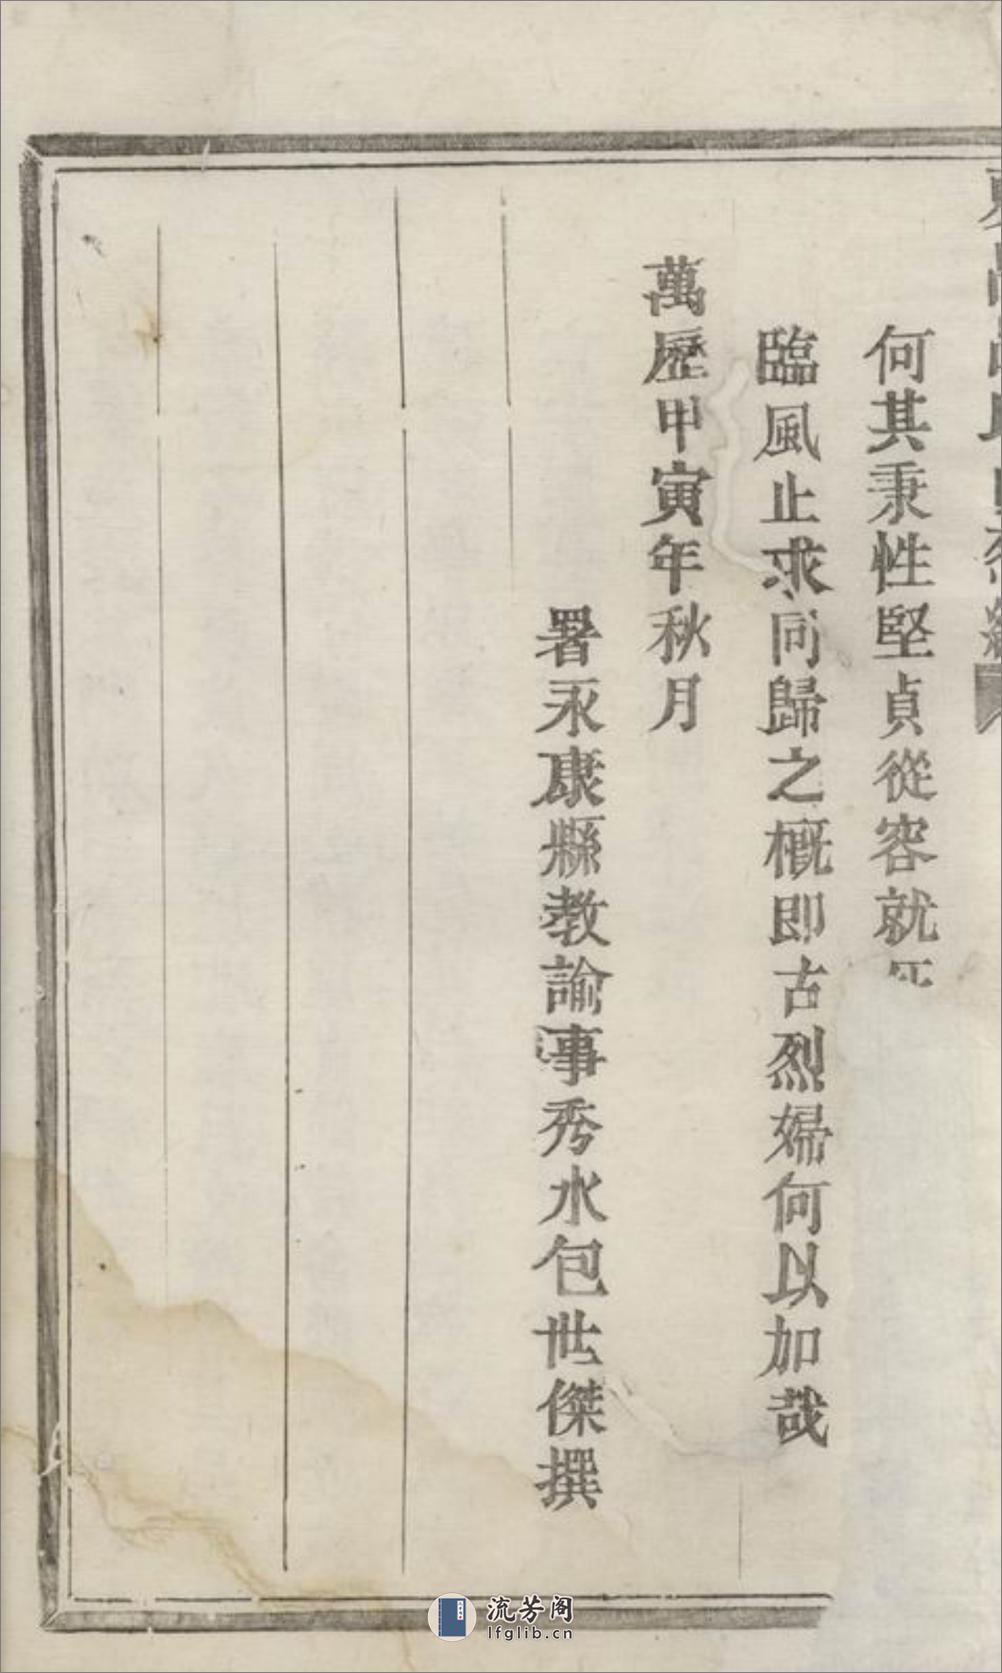 何其秉性堅貞從容就
臨風止求同歸之概即古烈婦何以加哉
萬歷甲寅年秋月
署永康縣教諭事秀水包世傑撰
流芳阁
lfglib.cn